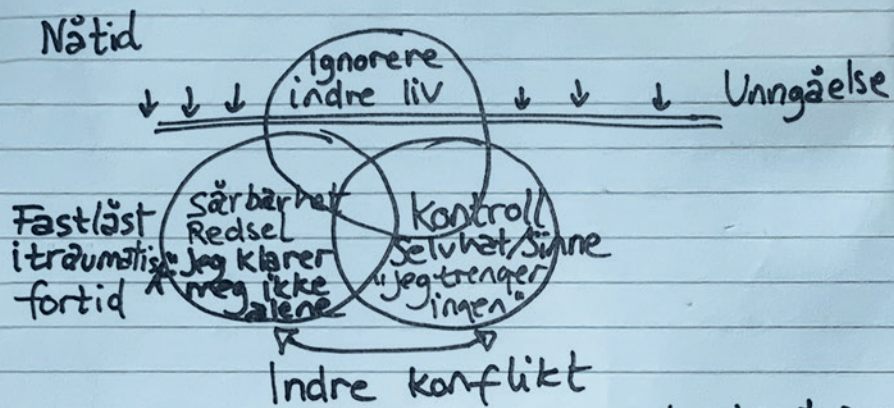 Nåtid
Ignorere
indre liv
Unngåelse
Fastlåst
i traumatisk
fortid
Sårbarhet
Redsel
"jeg klarer
meg ikke
alene
Kontroll
Selvhat/Sinne
"jeg trenger
ingen"
Indre konflikt